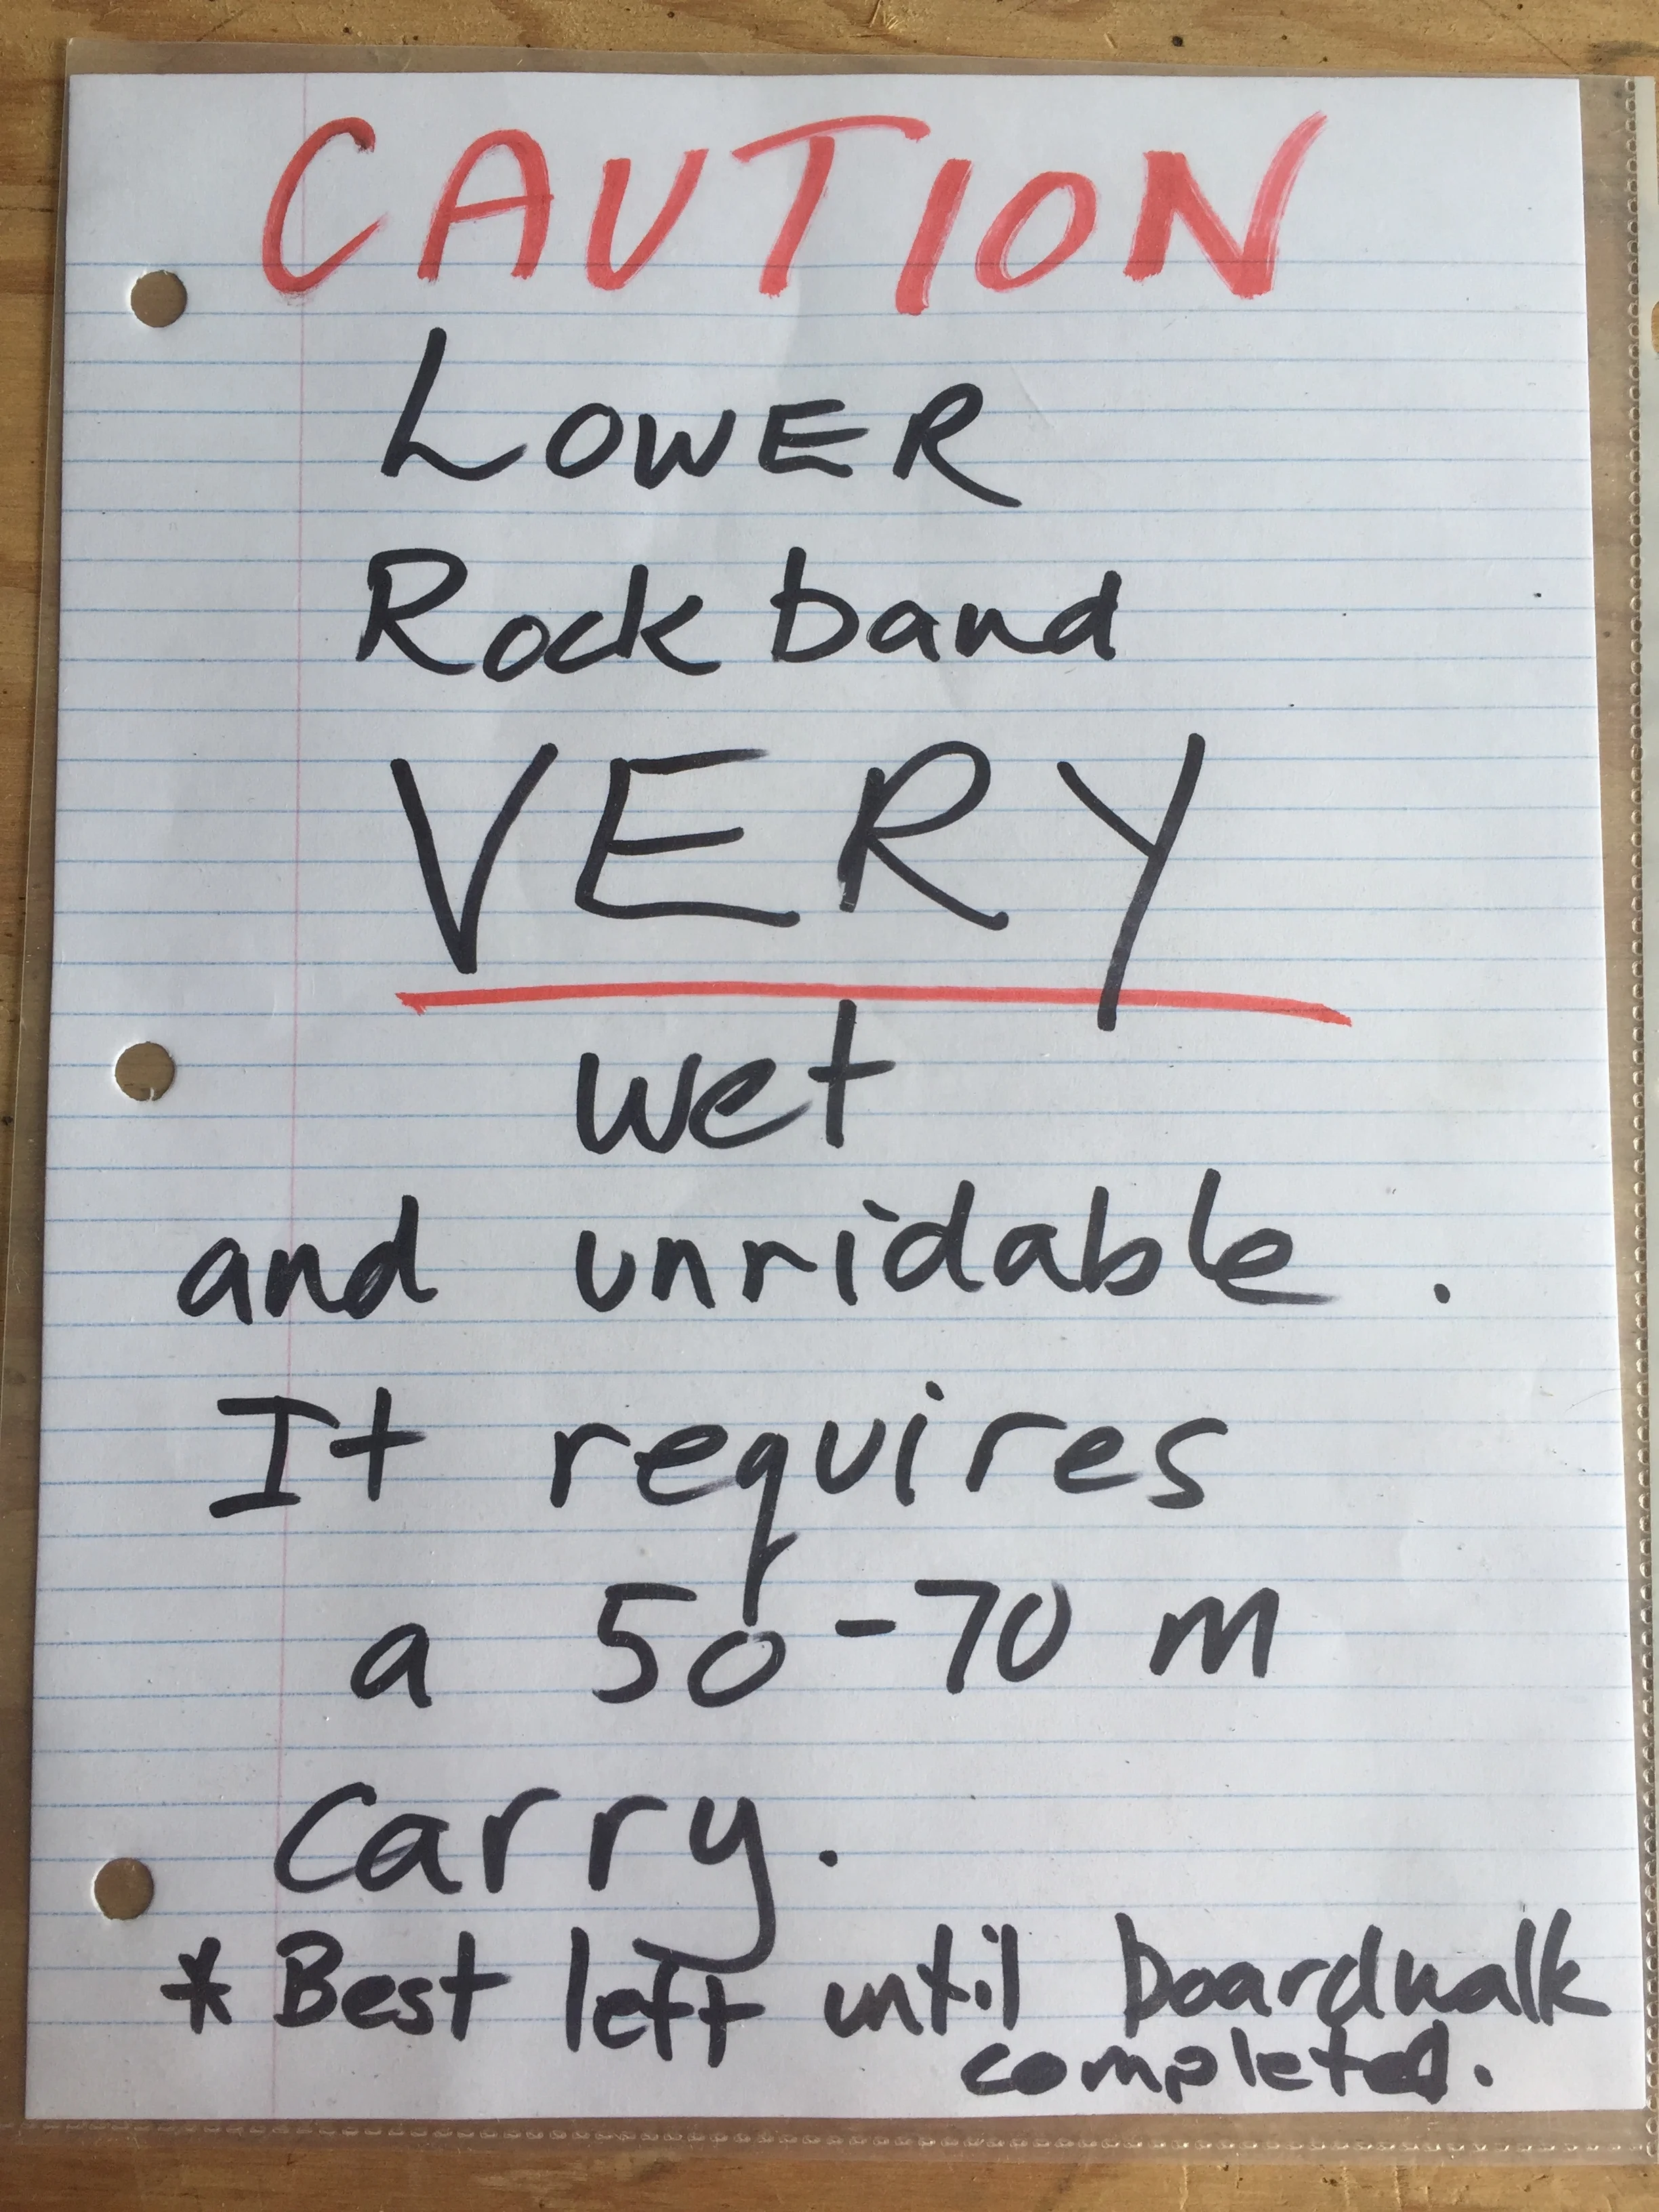 CAUTION
LOWER
Rock band
VERY
wet
and unridable.
It requires
a 50-70 m
Carry.
* Best left until boardwalk
completed.